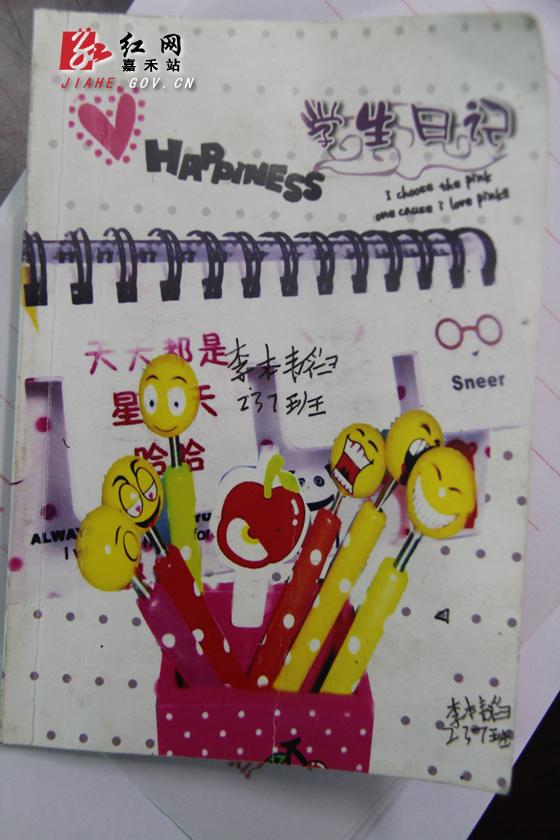 红网
嘉禾站
JIAHE.GOV.CN
学生日记
HAPPINESS
I choose the pink
one cause i love pink!!
天天都是
星 天
哈哈
李
237班
Sneer
ALWAY
I
for
李
237班